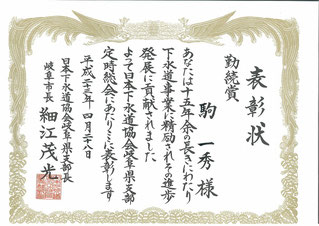 表彰状
勤続賞
駒 一秀 様
あなたは十五年余の長きにわたり
下水道事業に精励されその進歩
発展に貢献されました
よって日本下水道協会岐阜県支部
定時総会にあたりここに表彰します
平成二十三年 四月二十八日
日本下水道協会岐阜県支部長
岐阜市長 細江茂光